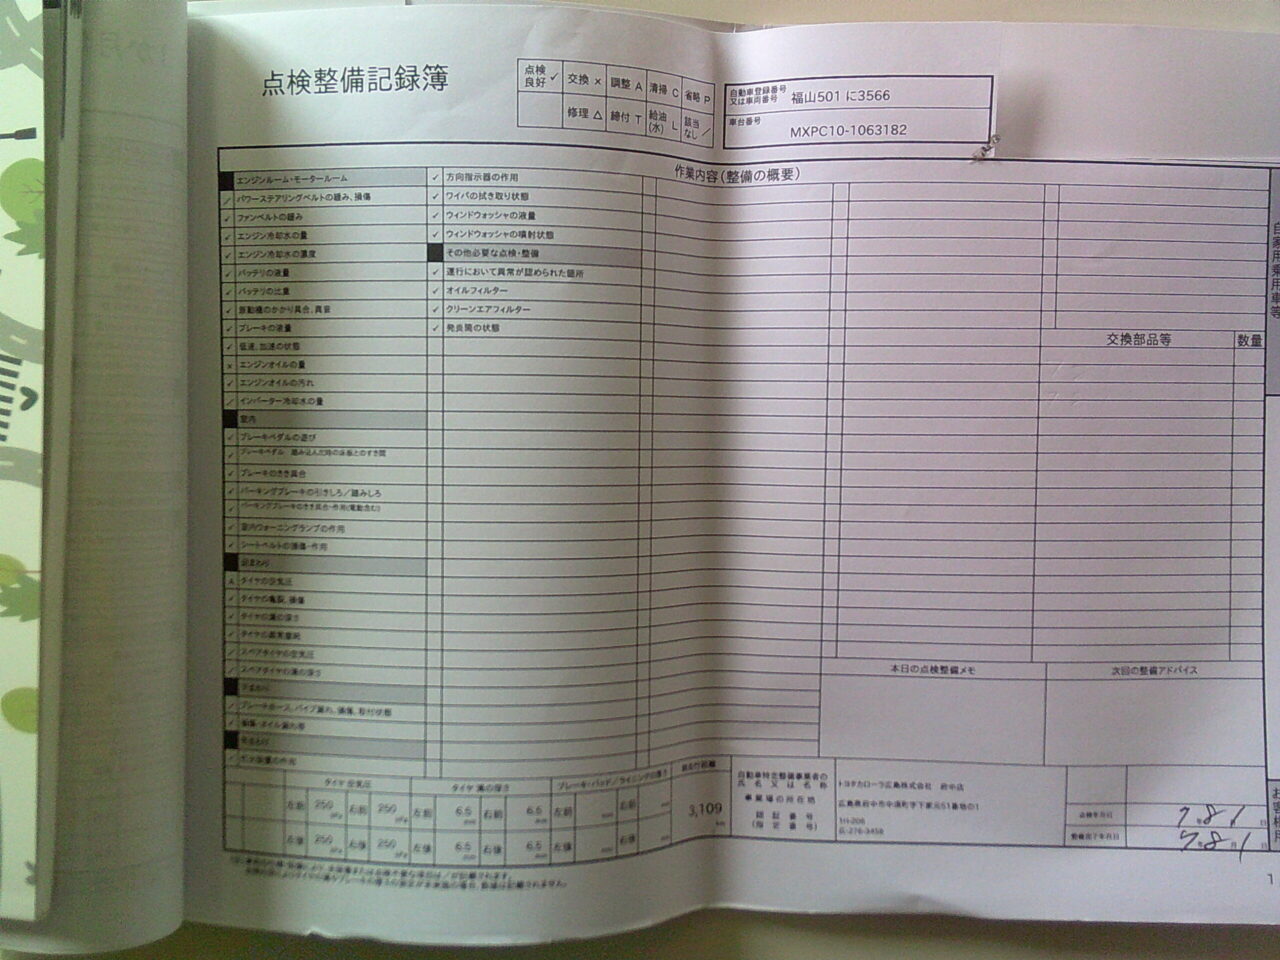 点検整備記録簿
点検良好 ✓ 交換 × 調整 A 清掃 C 省略 P
修理 △ 締付 T 給油(水) L 該当なし ／
自動車登録番号又は車両番号 福山501 に3566
車台番号 MXPC10-1063182
作業内容(整備の概要)
エンジンルーム・モータールーム
／ パワーステアリングベルトの緩み、損傷
✓ ファンベルトの緩み
✓ エンジン冷却水の量
✓ エンジン冷却水の濃度
✓ バッテリの液量
✓ バッテリの比重
✓ 原動機のかかり具合、異音
✓ ブレーキの液量
✓ 低速、加速の状態
× エンジンオイルの量
✓ エンジンオイルの汚れ
／ インバーター冷却水の量
室内
✓ ブレーキペダルの遊び
✓ ブレーキペダル 踏み込んだ時の床板とのすき間
✓ ブレーキのきき具合
✓ パーキングブレーキの引きしろ／踏みしろ
✓ パーキングブレーキのきき具合・作用(電動含む)
✓ 室内ウォーニングランプの作用
✓ シートベルトの損傷・作用
足まわり
A タイヤの空気圧
✓ タイヤの亀裂、損傷
✓ タイヤの溝の深さ
✓ タイヤの異常磨耗
スペアタイヤの空気圧
スペアタイヤの溝の深さ
下まわり
✓ ブレーキホース、パイプ漏れ、損傷、取付状態
外まわり
✓ 方向指示器の作用
✓ ワイパの拭き取り状態
✓ ウィンドウォッシャの液量
✓ ウィンドウォッシャの噴射状態
その他必要な点検・整備
✓ 運行において異常が認められた箇所
✓ オイルフィルター
✓ クリーンエアフィルター
✓ 発炎筒の状態
交換部品等 数量
本日の点検整備メモ 次回の整備アドバイス
自家用乗用車等
タイヤ空気圧 タイヤ溝の深さ ブレーキ・パッド／ライニングの厚さ 総走行距離
左前 250 kPa 右前 250 kPa 左前 6.5 mm 右前 6.5 mm 左前 右前 mm
左後 250 kPa 右後 250 kPa 左後 6.5 mm 右後 6.5 mm 左後 右後 mm
3,109 km
自動車特定整備事業者の氏名又は名称 トヨタカローラ広島株式会社 府中店
事業場の所在地 広島県府中市中須町字下家元51番地の1
認証番号 (指定番号)
点検年月日 7年8月1日
整備完了年月日 7年8月1日
1